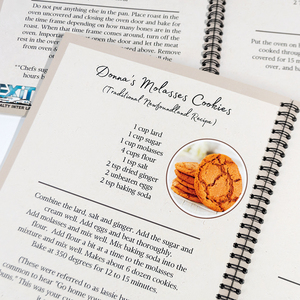 Do not put anything else in the pan. Place roast in the
oven uncovered and closing the oven door and bake for
the time frame depending on how many bones are in the
roast. When that time frame comes around, turn off the
oven. Important, don't open the door and let the meat
EXIT
hours b
REALTY INTER LA
Put the oven on
covered for 15
over, and bec
Donna's Molasses Cookies
(Traditional Newfoundland Recipe)
1 cup lard
1 cup sugar
1 cup molasses
4 cups flour
1 tsp salt
2 tsp dried ginger
2 unbeaten eggs
2 tsp baking soda
Combine the lard, salt and ginger. Add the sugar and
cream well. Add eggs and beat thoroughly.
Add molasses and mix well. Mix baking soda into the
flour. Add flour a bit at a time to the molasses
mixture and mix well. Makes about 6 dozen cookies.
Bake at 350 degrees for 12 to 15 minutes.
(These were referred to as lassie b
common to hear "Go home y
Bums." This was your cu